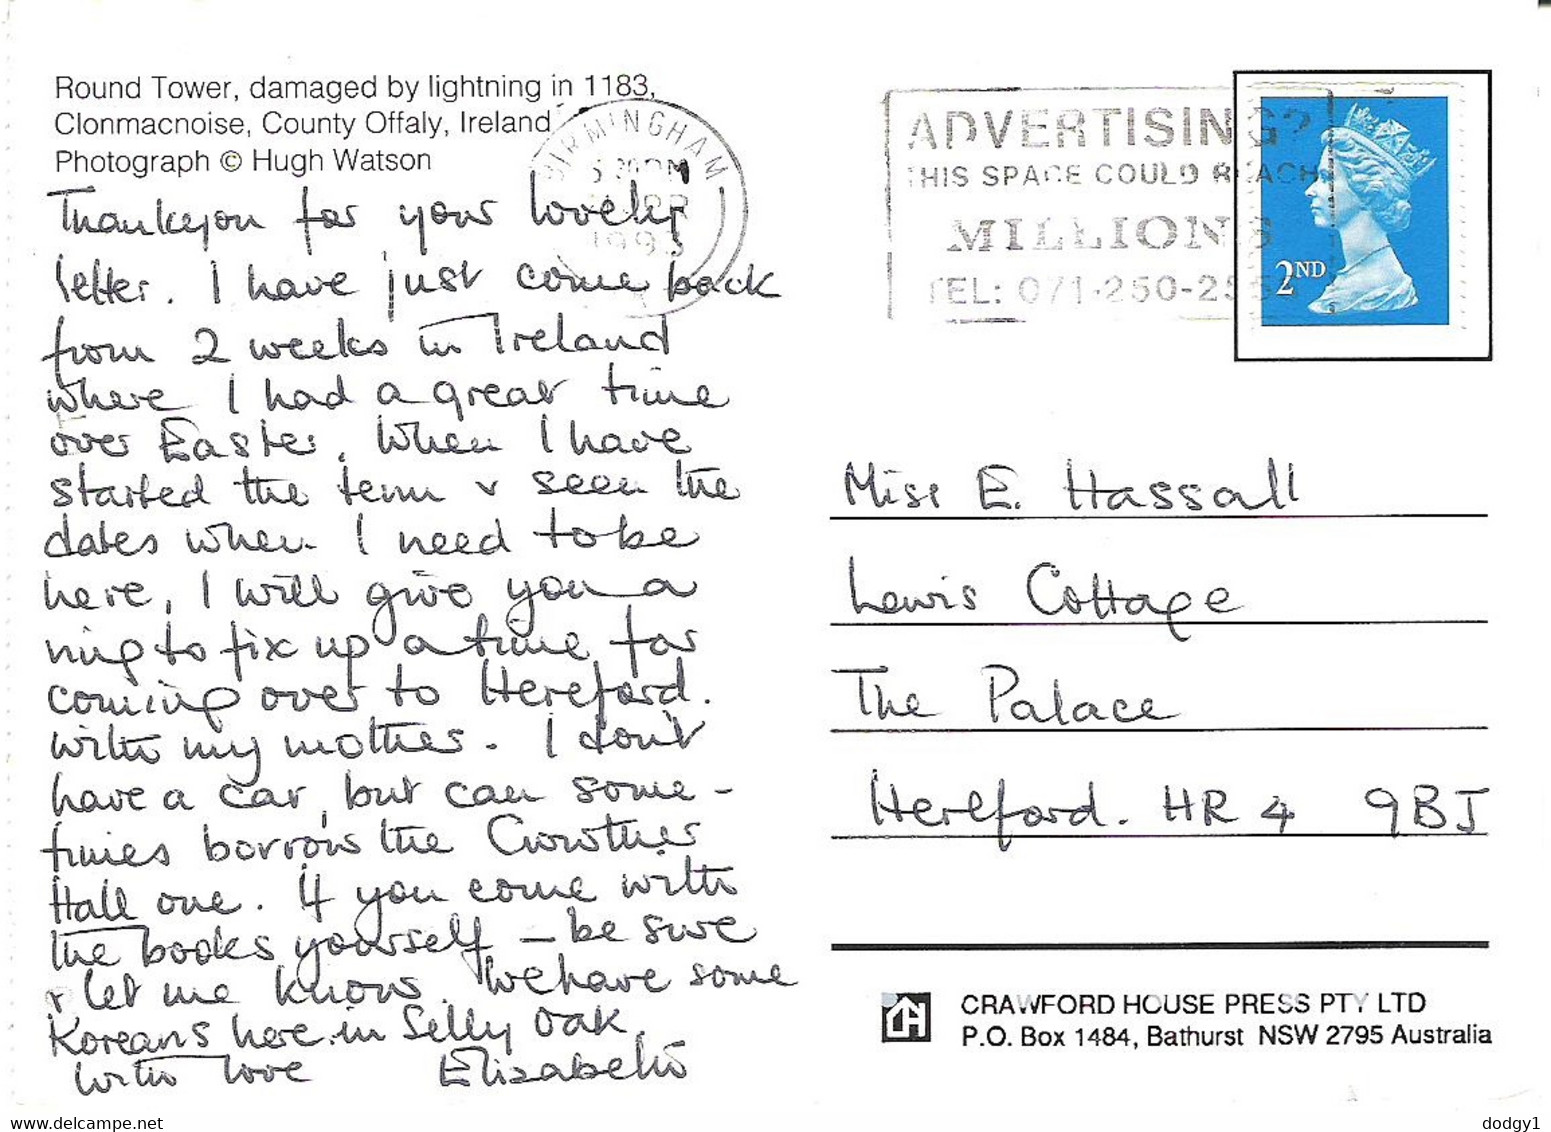 Round Tower, damaged by lightning in 1183,
Clonmacnoise, County Offaly, Ireland
Photograph © Hugh Watson
BIRMINGHAM
1993
ADVERTISING?
THIS SPACE COULD REACH
MILLIONS
TEL: 071-250-2
2ND
Thankyou for your lovely
letter. I have just come back
from 2 weeks in Ireland
where I had a great time
over Easter. When I have
started the term & seen the
dates when I need to be
here, I will give you a
ring to fix up a time for
coming over to Hereford.
with my mother. I don't
have a car, but can some-
times borrow the Crowther
Hall one. If you come with
the books yourself – be sure
& let me know. We have some
Koreans here in Selly Oak.
With love Elizabeth
Miss E. Hassall
Lewis Cottage
The Palace
Hereford. HR4 9BJ
CRAWFORD HOUSE PRESS PTY LTD
P.O. Box 1484, Bathurst NSW 2795 Australia
dodgy1